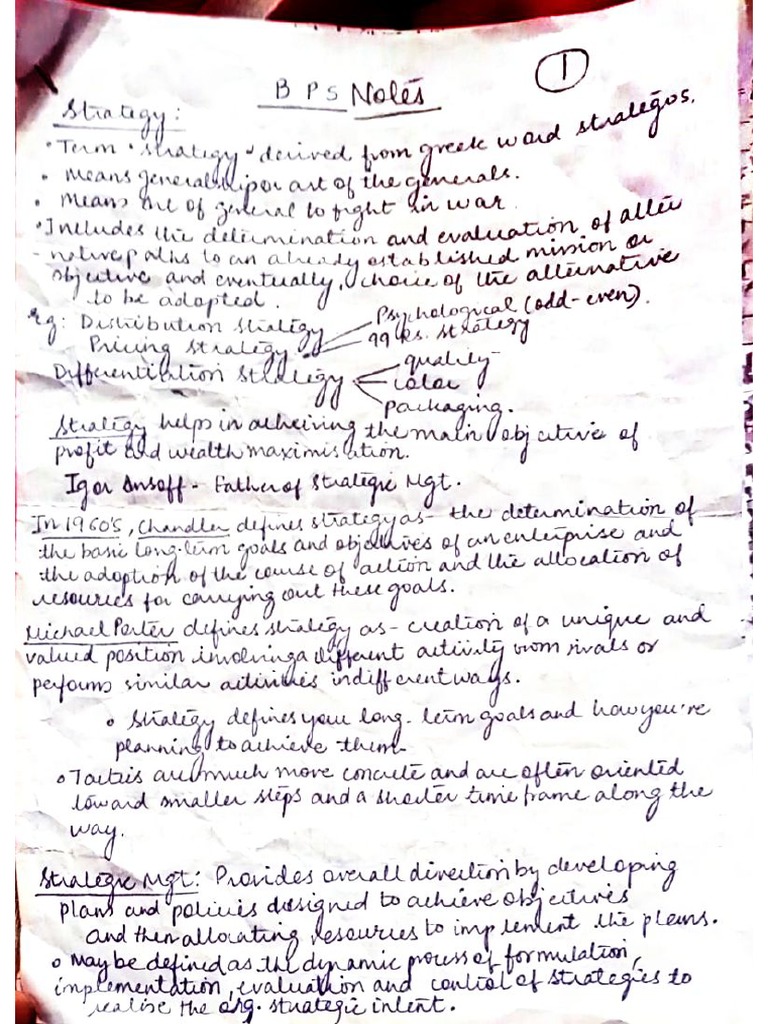 1
BPS Notes
Strategy:
• Term "strategy" derived from greek word strategos.
• Means generalship or art of the generals.
• Means art of general to fight in war.
• Includes the determination and evaluation of alter
- native paths to an already established mission or
objective and eventually, choice of the alternative
to be adopted.
Eg: Distribution strategy
Psychological (odd-even).
Pricing strategy
99 Rs. strategy
Differentiation strategy
quality
color
packaging.
Strategy helps in acheiving the main objective of
profit and wealth maximisation.
Igor Ansoff - Father of Strategic Mgt.
In 1960's, Chandler defines strategy as - the determination of
the basic long-term goals and objectives of an enterprise and
the adoption of the course of action and the allocation of
resources for carrying out these goals.
Michael Porter defines strategy as - creation of a unique and
valued position involving a different activity from rivals or
perform similar activities in different ways.
• Strategy defines your long-term goals and how you're
planning to achieve them-
• Tactics are much more concrete and are often oriented
toward smaller steps and a shorter time frame along the
way.
Strategic Mgt: Provides overall direction by developing
plans and policies designed to achieve objectives
and then allocating resources to implement the plans.
• may be defined as the dynamic process of formulation,
implementation, evaluation and control of strategies to
realise the org. strategic intent.